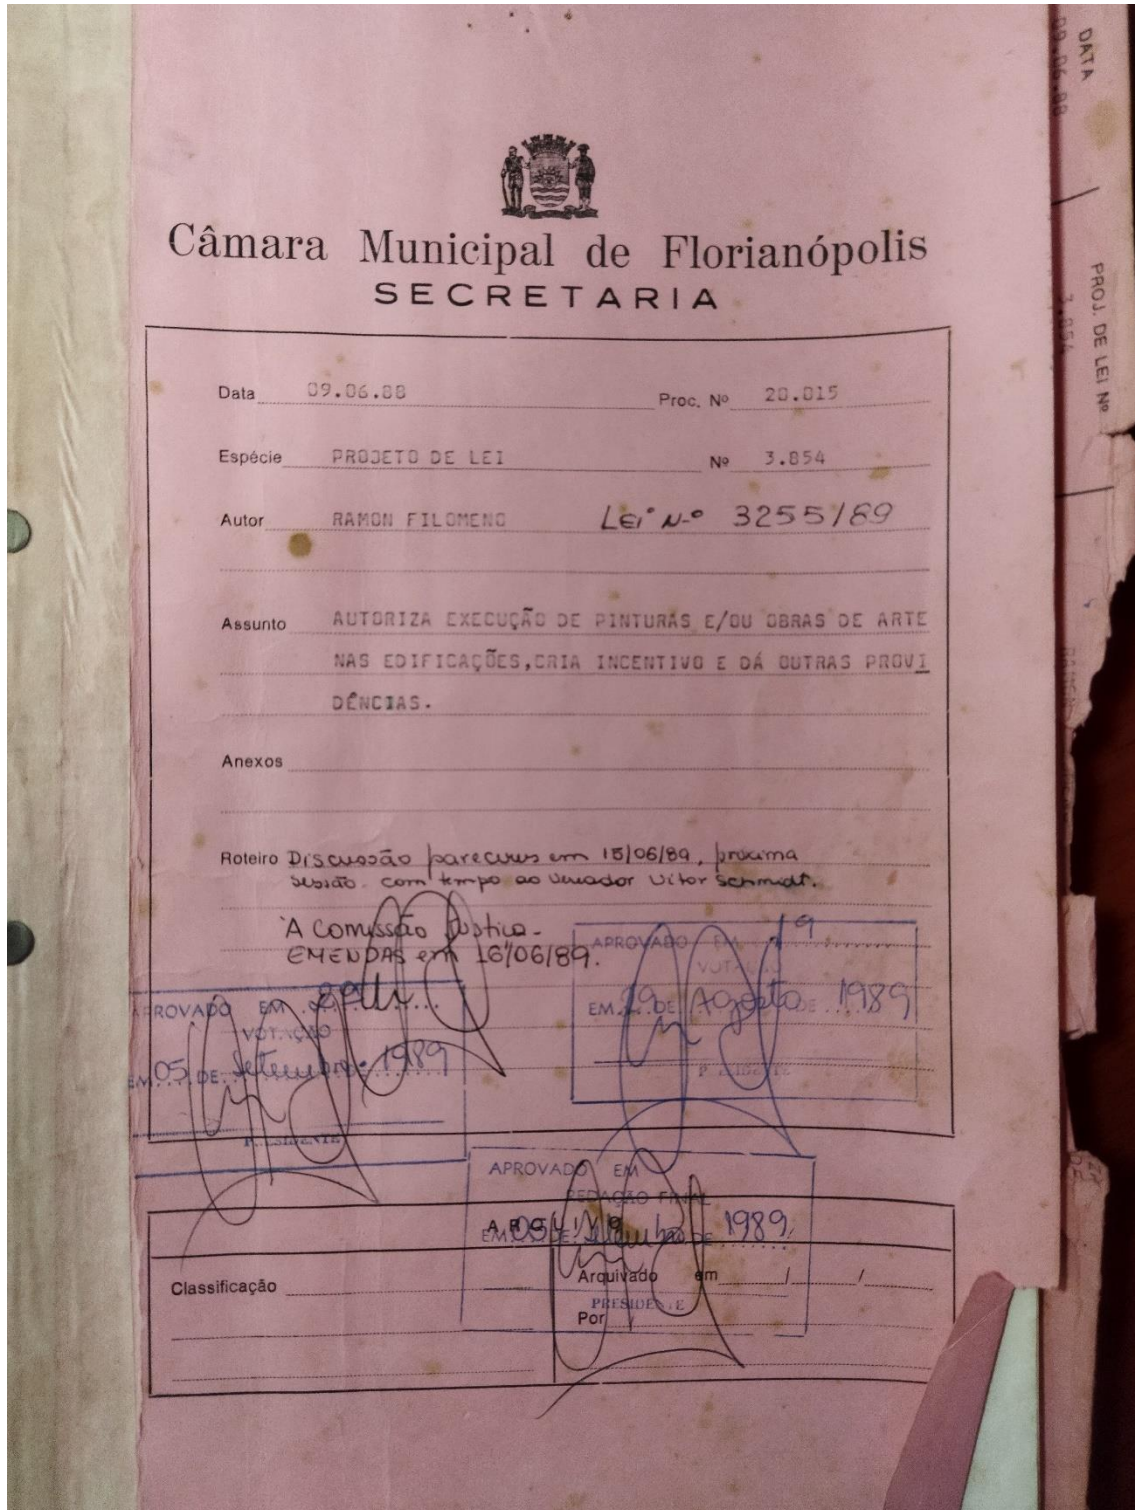 Câmara Municipal de Florianópolis
SECRETARIA
Data 09.06.88 Proc. Nº 20.015
Espécie PROJETO DE LEI Nº 3.854
Autor RAMON FILOMENO Lei Nº 3255/89
Assunto AUTORIZA EXECUÇÃO DE PINTURAS E/OU OBRAS DE ARTE
NAS EDIFICAÇÕES,CRIA INCENTIVO E DÁ OUTRAS PROVI
DÊNCIAS.
Anexos
Roteiro Discussão pareceres em 15/06/89, próxima
sessão com tempo ao vereador Vitor Schmidt.
A Comissão Justiça -
EMENDAS em 16/06/89.
APROVADO EM 1ª
VOTAÇÃO
EM 29 DE Agosto DE 1989
PRESIDENTE
APROVADO EM 2ª
VOTAÇÃO
EM 05 DE Setembro DE 1989
PRESIDENTE
APROVADO EM
REDAÇÃO FINAL
EM 05 DE Setembro DE 1989
PRESIDENTE
ARQUIVO
Classificação
Arquivado em / /
Por
DATA
09.06.88
PROJ. DE LEI Nº
3.854